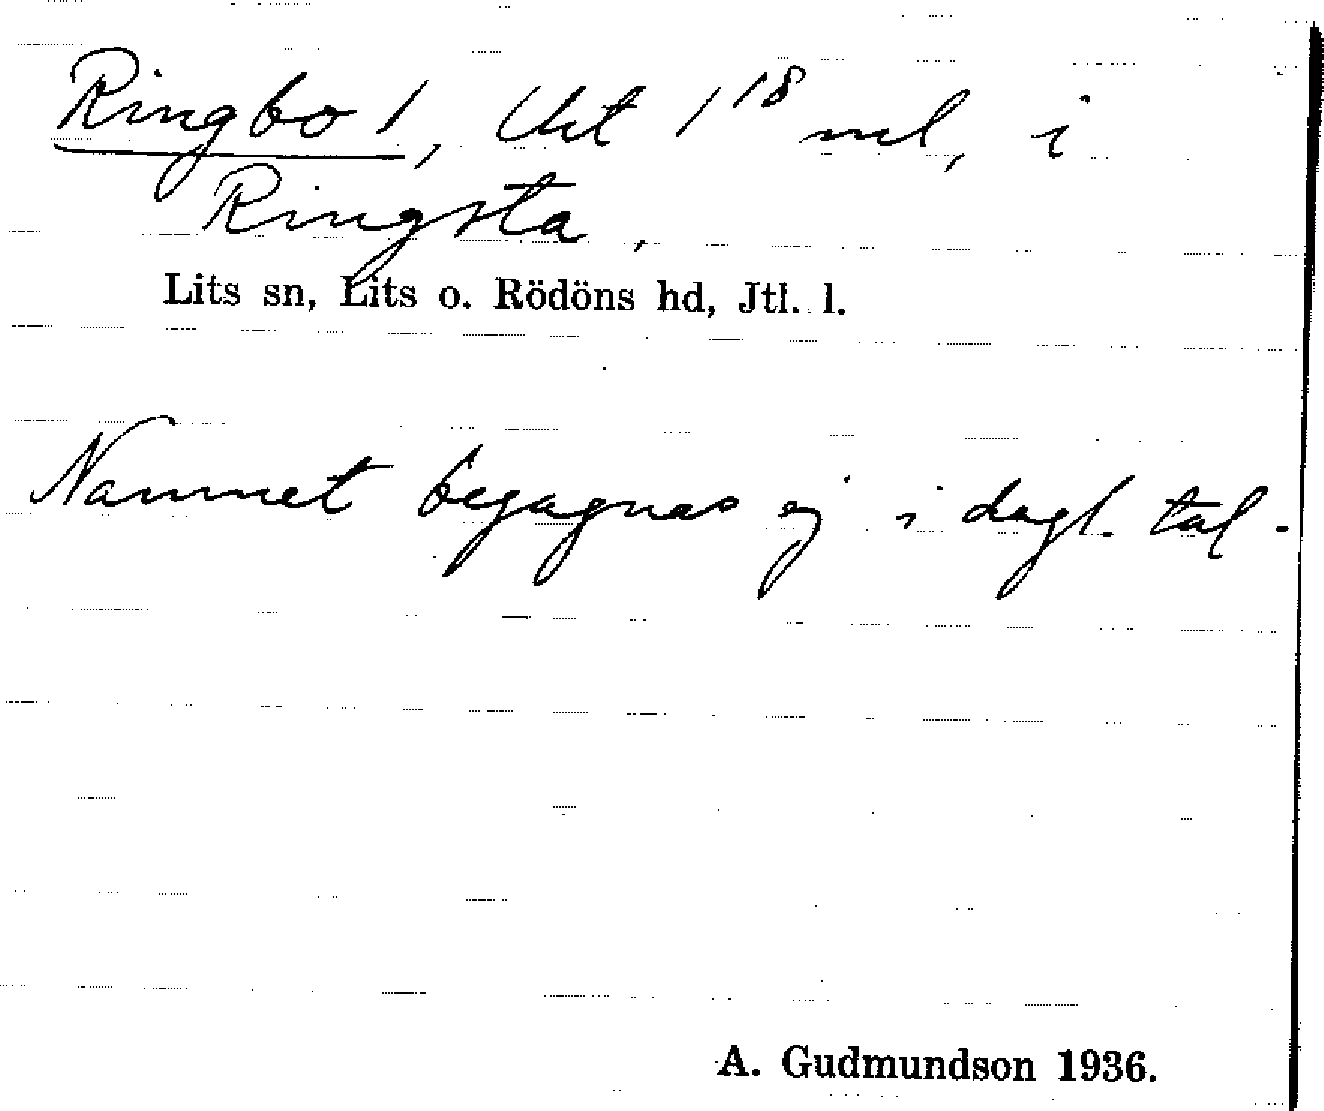 Ringbo 1, Uht 1¹⁸ ml, i
Ringsta,
Lits sn, Lits o. Rödöns hd, Jtl. l.
Namnet begagnas ej i dagl. tal.
A. Gudmundson 1936.